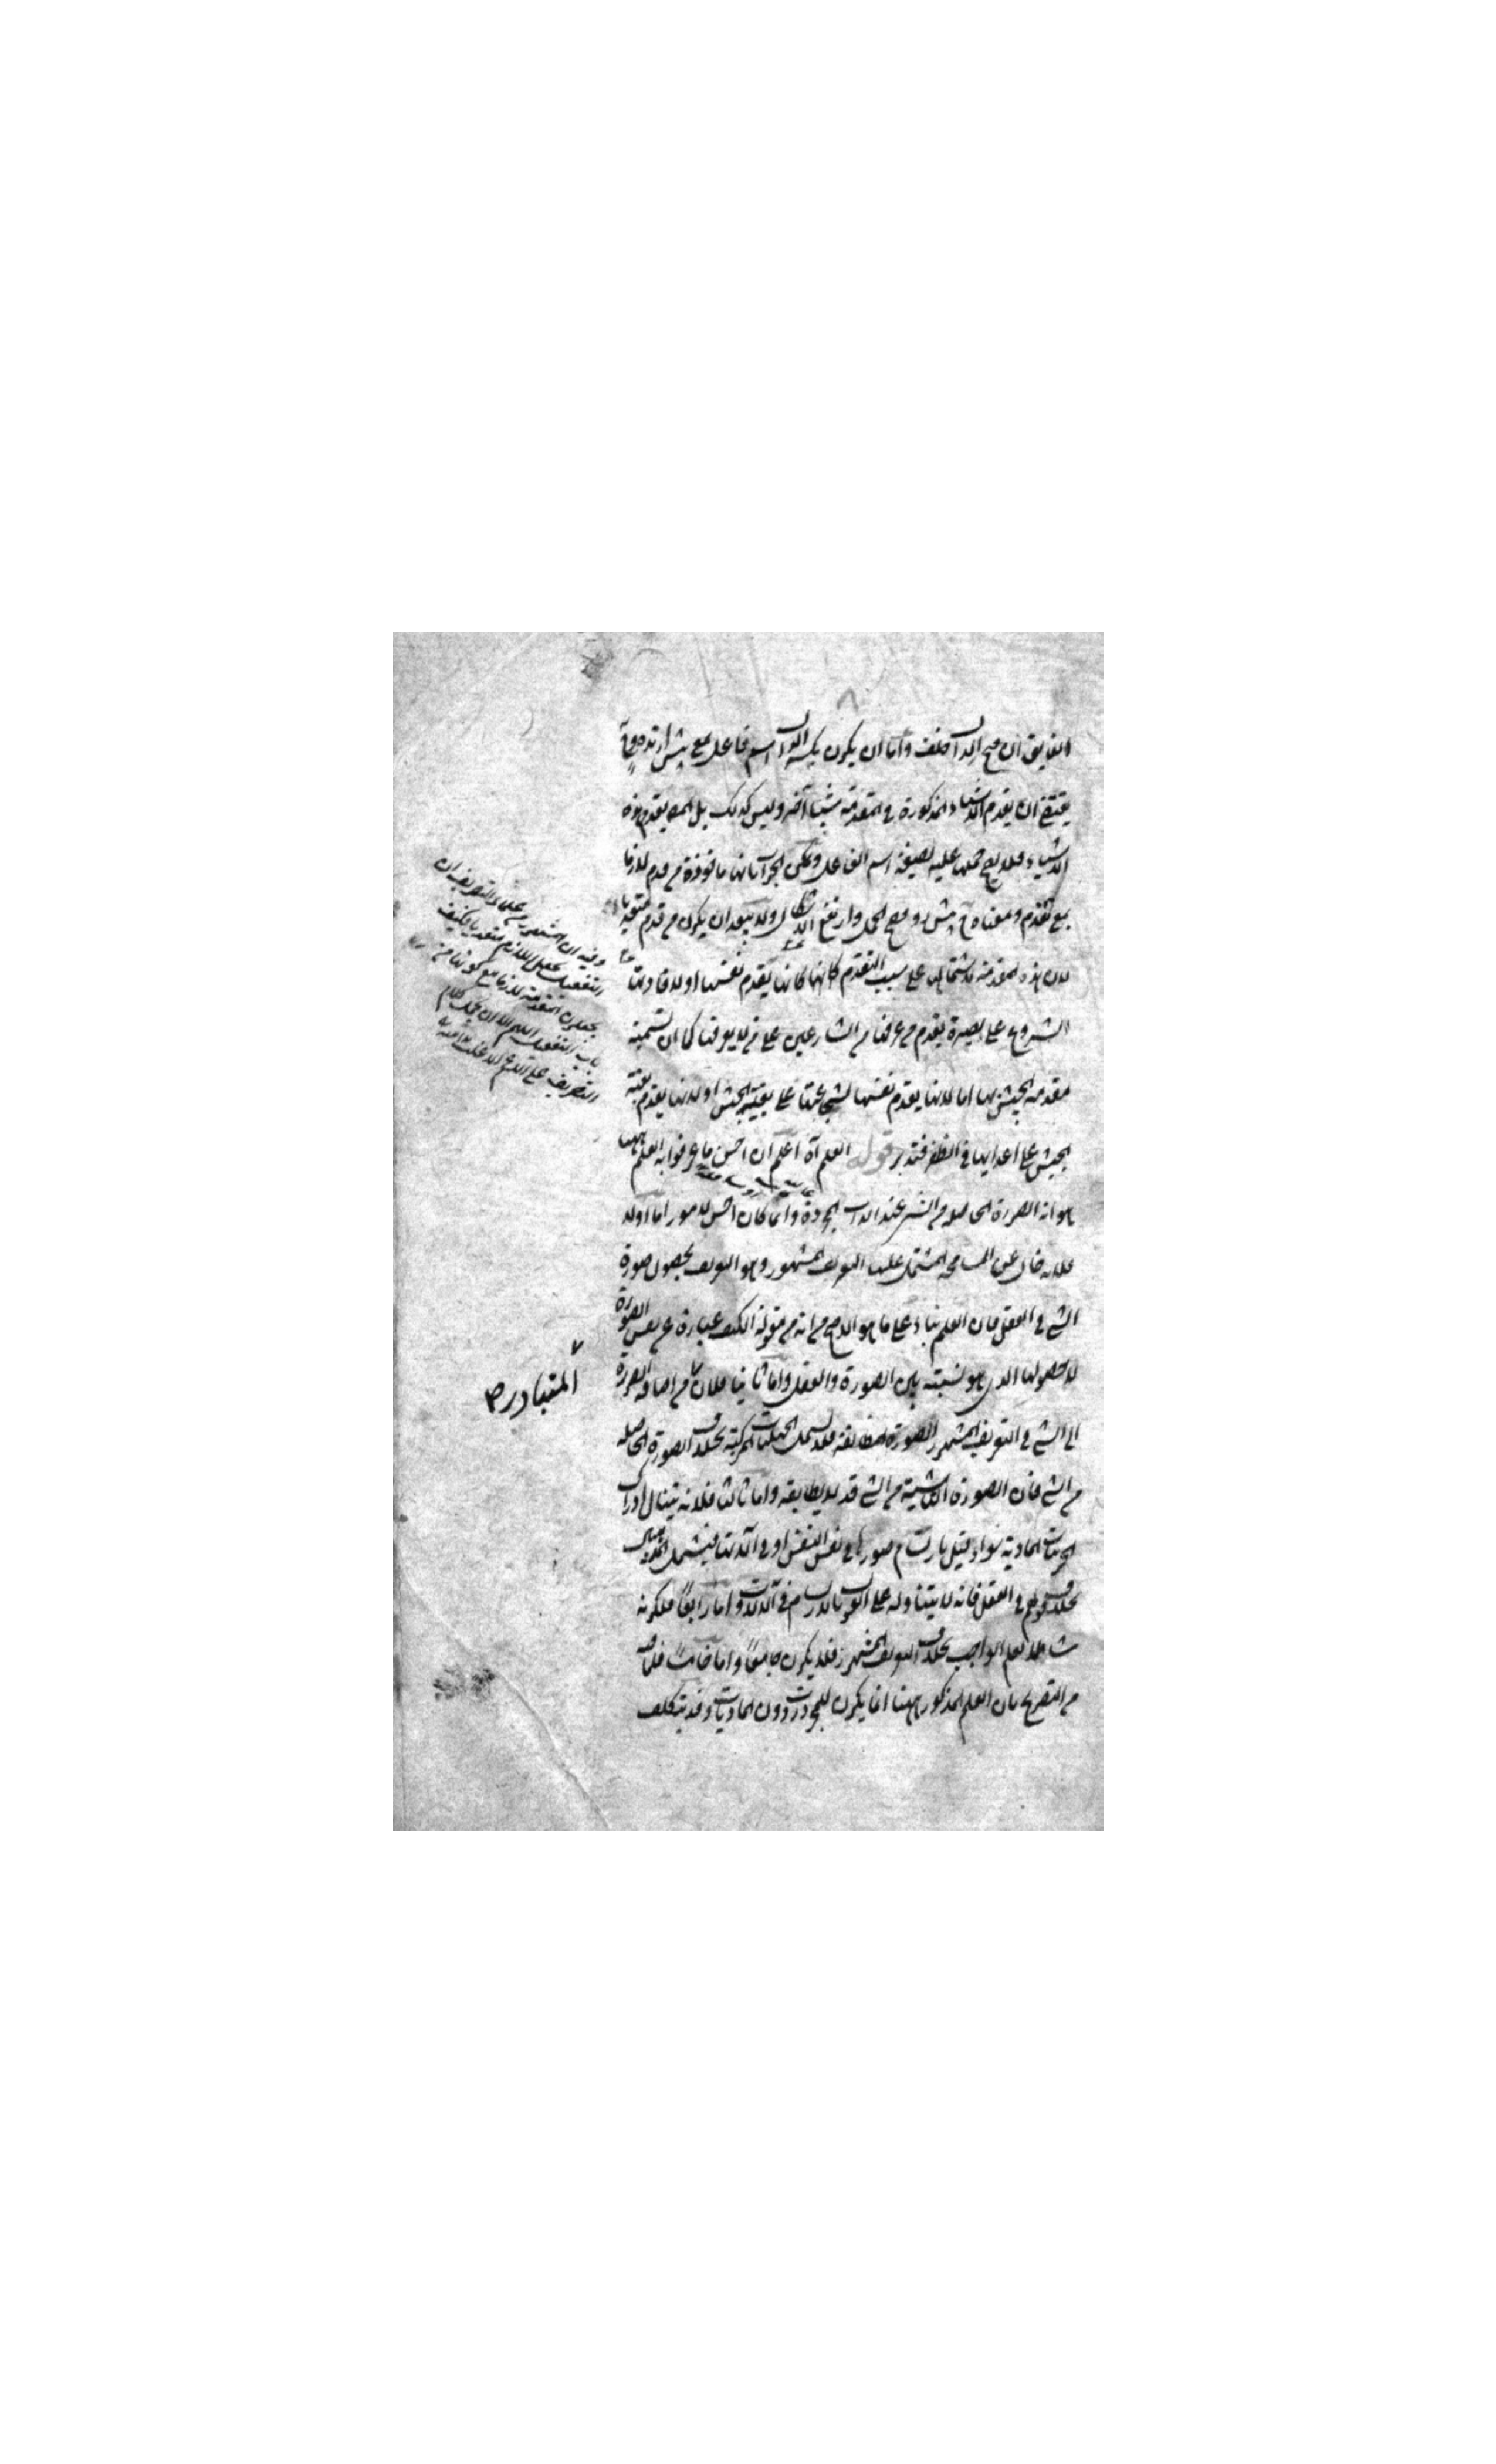 الفايق ان فتح الدال خلف واما ان يكون بكسر الدال اسم فاعل بمعنى پيش ارنده وح
يقتضي ان يقدم الاشياء المذكورة في المقدمة شيئا آخر وليس كذلك بل المص يقدم هذه
الاشياء فلا يصح حملها عليه بصيغة اسم الفاعل ويمكن الجواب بانها ماخوذة من قدم لازما
بمعنى تقدم ومعناه ح پيش رو فصح الحمل وارتفع الاشكال ولا يبعد ان يكون من قدم متعديا
لان هذه المقدمة لاشتمالها على سبب التقدم كانها يقدم نفسها او لافادتها
الشروع على بصيرة يقدم من عرفها من الشارعين على من لا يعرفها كما ان تسمية
مقدمة الجيش بها اما لانها يقدم نفسها لشجاعتها على بقية الجيش او لانها يقدم بقية
الجيش على اعدائها في الظفر فتدبر قوله العلم آه اعلم ان احسن ما عرفوا به العلم ههنا
هو انه الصورة الحاصلة من الشيء عند الذات المجردة وانما كان احسن لامور اما اولا
فلانه خال عن المسامحة المشتمل عليها التعريف المشهور وهو التعريف بحصول صورة
الشيء في العقل فان العلم بناء على ما هو الاصح من انه من مقولة الكيف عبارة عن نفس الصورة
لا حصولها الذي هو نسبة بين الصورة والعقل واما ثانيا فلان من اضافة الصورة
الى الشيء في التعريف المشهور الصورة المطابقة فلا يشمل الجهليات المركبة بخلاف الصورة الحاصلة
من الشيء فان الصورة الناشية من الشيء قد لا يطابقه واما ثالثا فلانه يتناول ادراك
الجزئيات المادية سواء قيل بارتسام صورها في نفس النفس او في آلاتها فيشمل المذهبين
بخلاف قولهم في العقل فانه لا يتناوله على القول بالارتسام في الآلات واما رابعا فلكونه
شاملا لعلم الواجب بخلاف التعريف المشهور فلا يكون جامعا واما خامسا فلما فيه
من التصريح بان العلم المذكور ههنا انما يكون للمجردات دون الماديات وقد يتكلف
وفيه ان المشهور من علماء التصريف ان
التفعيل يجعل اللازم متعديا فكيف
يجعلون المقدمة لازما مع كونها من
باب التفعيل اللهم الا ان يحمل كلام
المتبادر صح